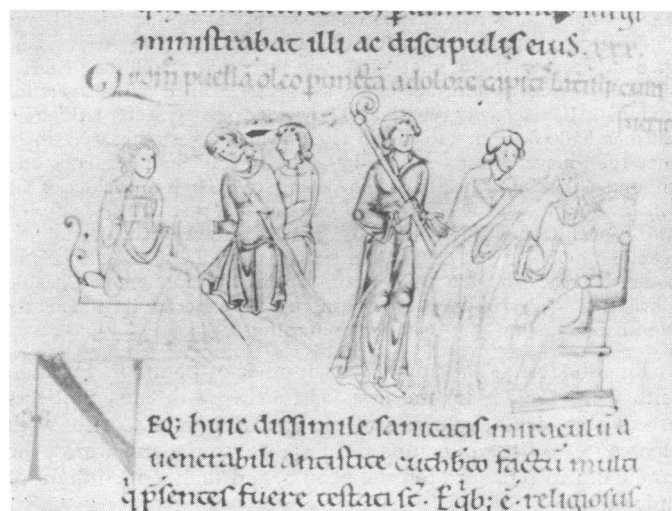 ministrabat illi ac discipulis eius. xxx.
Quom puellā oleo punctā a dolore capitis laterisq; cura
uerit
NEq; huic dissimile sanitatis miraculū a
uenerabili antistite cuthb̄to factū multi
q p̄sentes fuere testati st̄. Eqb; ē religiosus